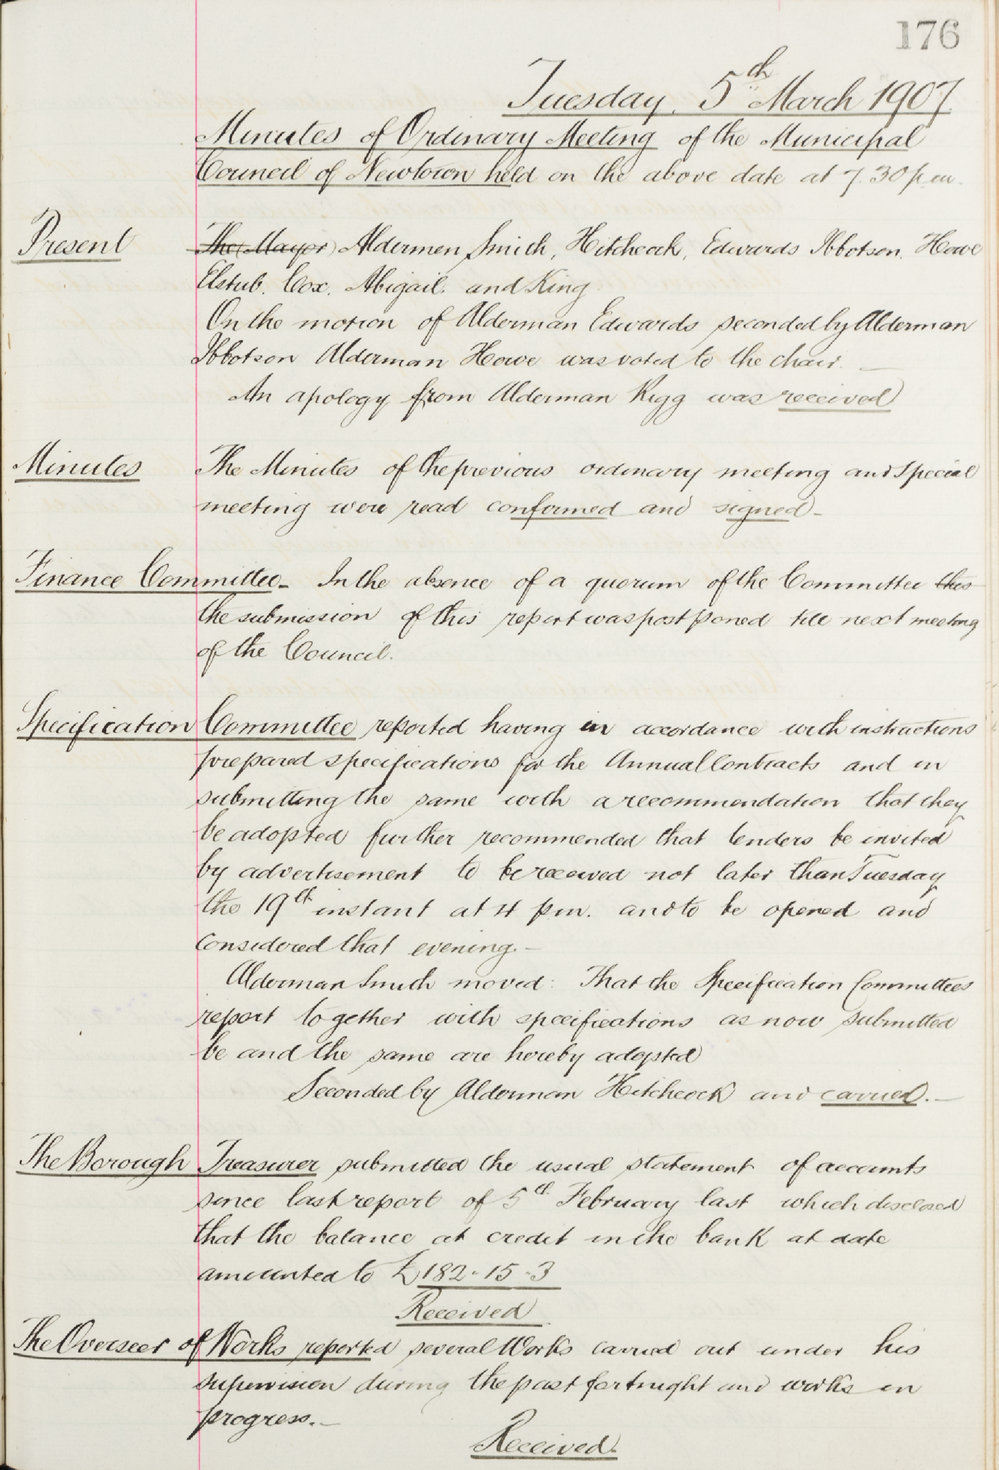 176
Tuesday 5th March 1907
Minutes of Ordinary Meeting of the Municipal
Council of Newtown held on the above date at 7.30 p.m.
Present The (Mayor) Aldermen Smith, Hitchcock, Edwards Ibbotson, Howe
Elstub. Cox, Abigail. and King
On the motion of Alderman Edwards seconded by Alderman
Ibbotson Alderman Howe was voted to the chair. —
An apology from Alderman Rigg was received
Minutes The Minutes of the previous ordinary meeting and Special
meeting were read confirmed and signed –
Finance Committee – In the absence of a quorum of the Committee this
the submission of this report was postponed till next meeting
of the Council.
Specification Committee reported having in accordance with instructions
prepared specifications for the Annual Contracts and in
submitting the same with a recommendation that they
be adopted further recommended that tenders be invited
by advertisement to be received not later than Tuesday
the 19th instant at 4 p.m. and to be opened and
considered that evening. –
Alderman Smith moved: That the Specification Committees
report together with specifications as now submitted
be and the same are hereby adopted
Seconded by Alderman Hitchcock and carried. —
The Borough Treasurer submitted the usual statement of accounts
since last report of 5th February last which disclosed
that the balance at credit in the bank at date
amounted to £182-15-3
Received
The Overseer of Works reported several Works carried out under his
supervision during the past fortnight and works in
progress. –
Received.